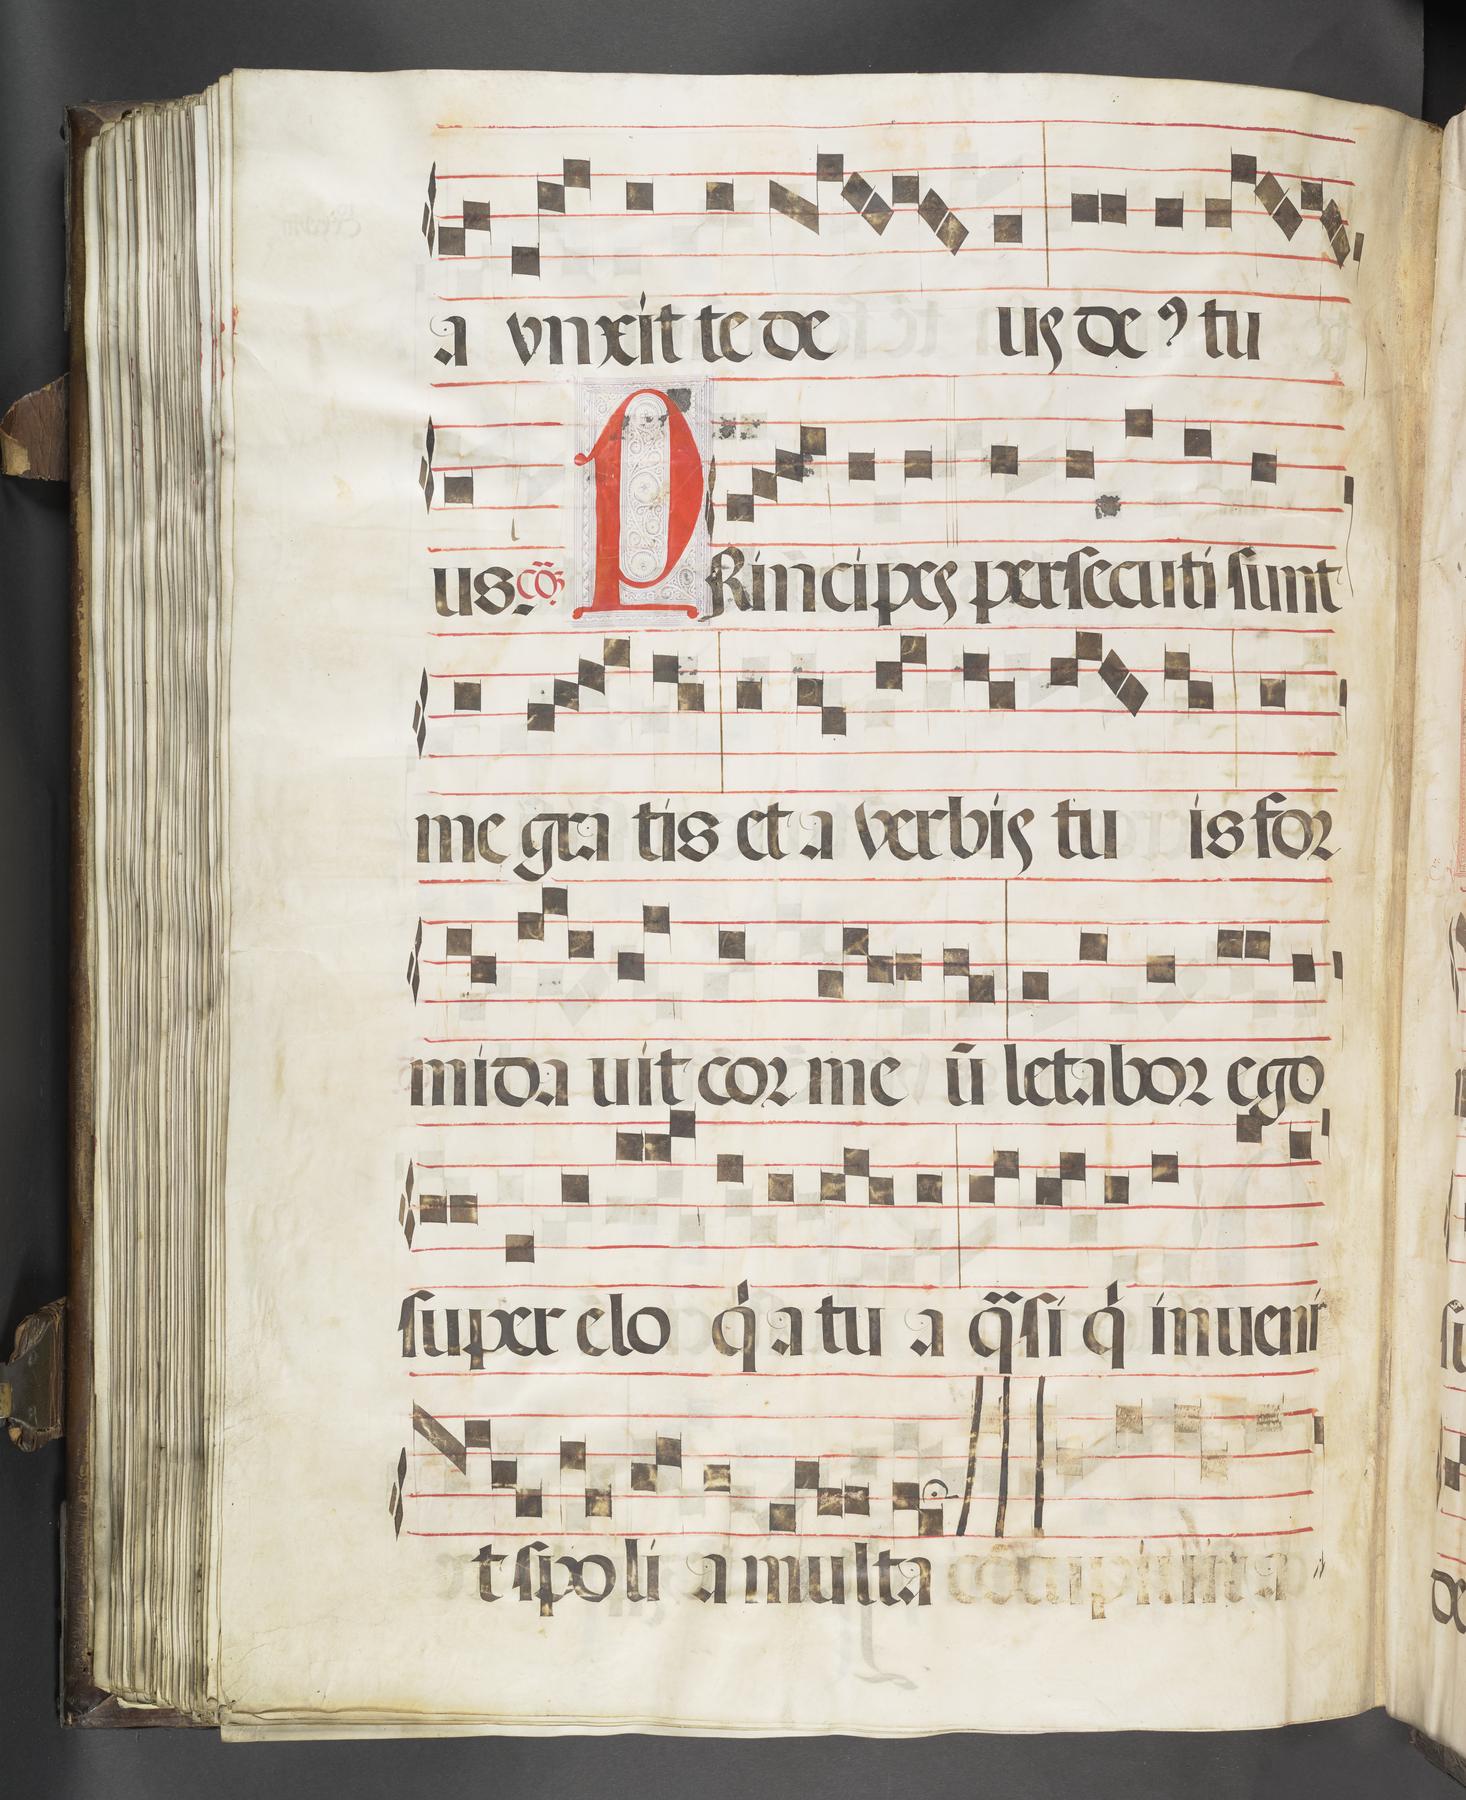 a vnxit te de us de ꝰ tu
us. cō₂ PRincipes persecuti sunt
me gra tis et a verbis tu is for
mida uit cor me ū letabor ego
super elo q̇ a tu a q̈si q̇ inueni
t spoli a multa